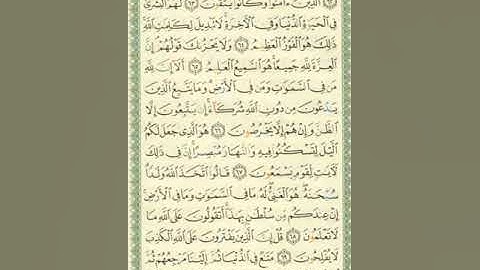 ٱلَّذِينَ ءَامَنُوا۟ وَكَانُوا۟ يَتَّقُونَ ۝٦٣ لَهُمُ ٱلْبُشْرَىٰ
فِى ٱلْحَيَوٰةِ ٱلدُّنْيَا وَفِى ٱلْءَاخِرَةِ لَا تَبْدِيلَ لِكَلِمَٰتِ ٱللَّهِ
ذَٰلِكَ هُوَ ٱلْفَوْزُ ٱلْعَظِيمُ ۝٦٤ وَلَا يَحْزُنكَ قَوْلُهُمْ إِنَّ
ٱلْعِزَّةَ لِلَّهِ جَمِيعًا هُوَ ٱلسَّمِيعُ ٱلْعَلِيمُ ۝٦٥ أَلَآ إِنَّ لِلَّهِ
مَن فِى ٱلسَّمَٰوَٰتِ وَمَن فِى ٱلْأَرْضِ وَمَا يَتَّبِعُ ٱلَّذِينَ
يَدْعُونَ مِن دُونِ ٱللَّهِ شُرَكَآءَ إِن يَتَّبِعُونَ إِلَّا
ٱلظَّنَّ وَإِنْ هُمْ إِلَّا يَخْرُصُونَ ۝٦٦ هُوَ ٱلَّذِى جَعَلَ لَكُمُ
ٱلَّيْلَ لِتَسْكُنُوا۟ فِيهِ وَٱلنَّهَارَ مُبْصِرًا إِنَّ فِى ذَٰلِكَ
لَءَايَٰتٍ لِّقَوْمٍ يَسْمَعُونَ ۝٦٧ قَالُوا۟ ٱتَّخَذَ ٱللَّهُ وَلَدًا
سُبْحَٰنَهُۥ هُوَ ٱلْغَنِىُّ لَهُۥ مَا فِى ٱلسَّمَٰوَٰتِ وَمَا فِى ٱلْأَرْضِ
إِنْ عِندَكُم مِّن سُلْطَٰنٍۭ بِهَٰذَآ أَتَقُولُونَ عَلَى ٱللَّهِ مَا
لَا تَعْلَمُونَ ۝٦٨ قُلْ إِنَّ ٱلَّذِينَ يَفْتَرُونَ عَلَى ٱللَّهِ ٱلْكَذِبَ
لَا يُفْلِحُونَ ۝٦٩ مَتَٰعٌ فِى ٱلدُّنْيَا ثُمَّ إِلَيْنَا مَرْجِعُهُمْ ثُمَّ